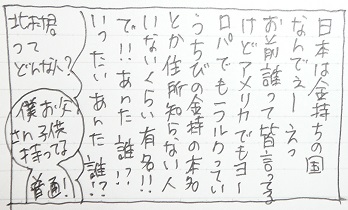 日本は金持ちの国
なんでぇーえっ
お前誰って皆言ってる
けどアメリカでもヨー
ロパでも
うちびの金持の本名
とか住所知らない人
いないくらい有名!!
で!!あんた誰!?
いったいあんた誰!?
北村君
って
どんな人?
僕お父
さん子供
持ってる
普通!